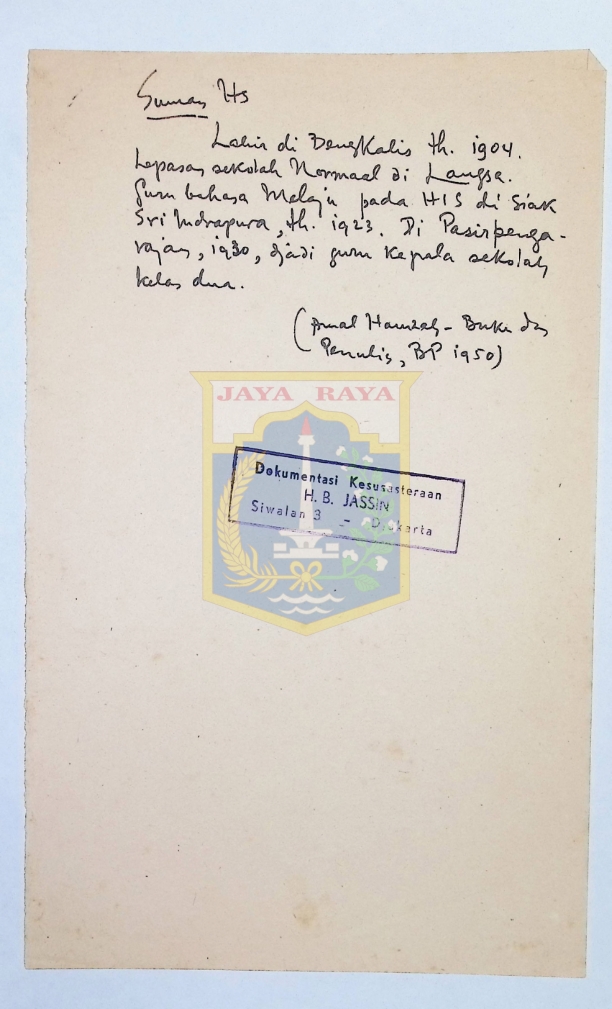 Suman Hs
Lahir di Bengkalis th. 1904.
Lepasan sekolah Normaal di Langsa.
Guru bahasa Melaju pada HIS di Siak
Sri Indrapura, th. 1923. Di Pasirpenga-
rajan, 1930, djadi guru kepala sekolah
kelas dua.
(Amal Hamzah - Buku dan
Penulis, BP 1950)
JAYA RAYA
Dokumentasi Kesusasteraan
H. B. JASSIN
Siwalan 3 - Djakarta